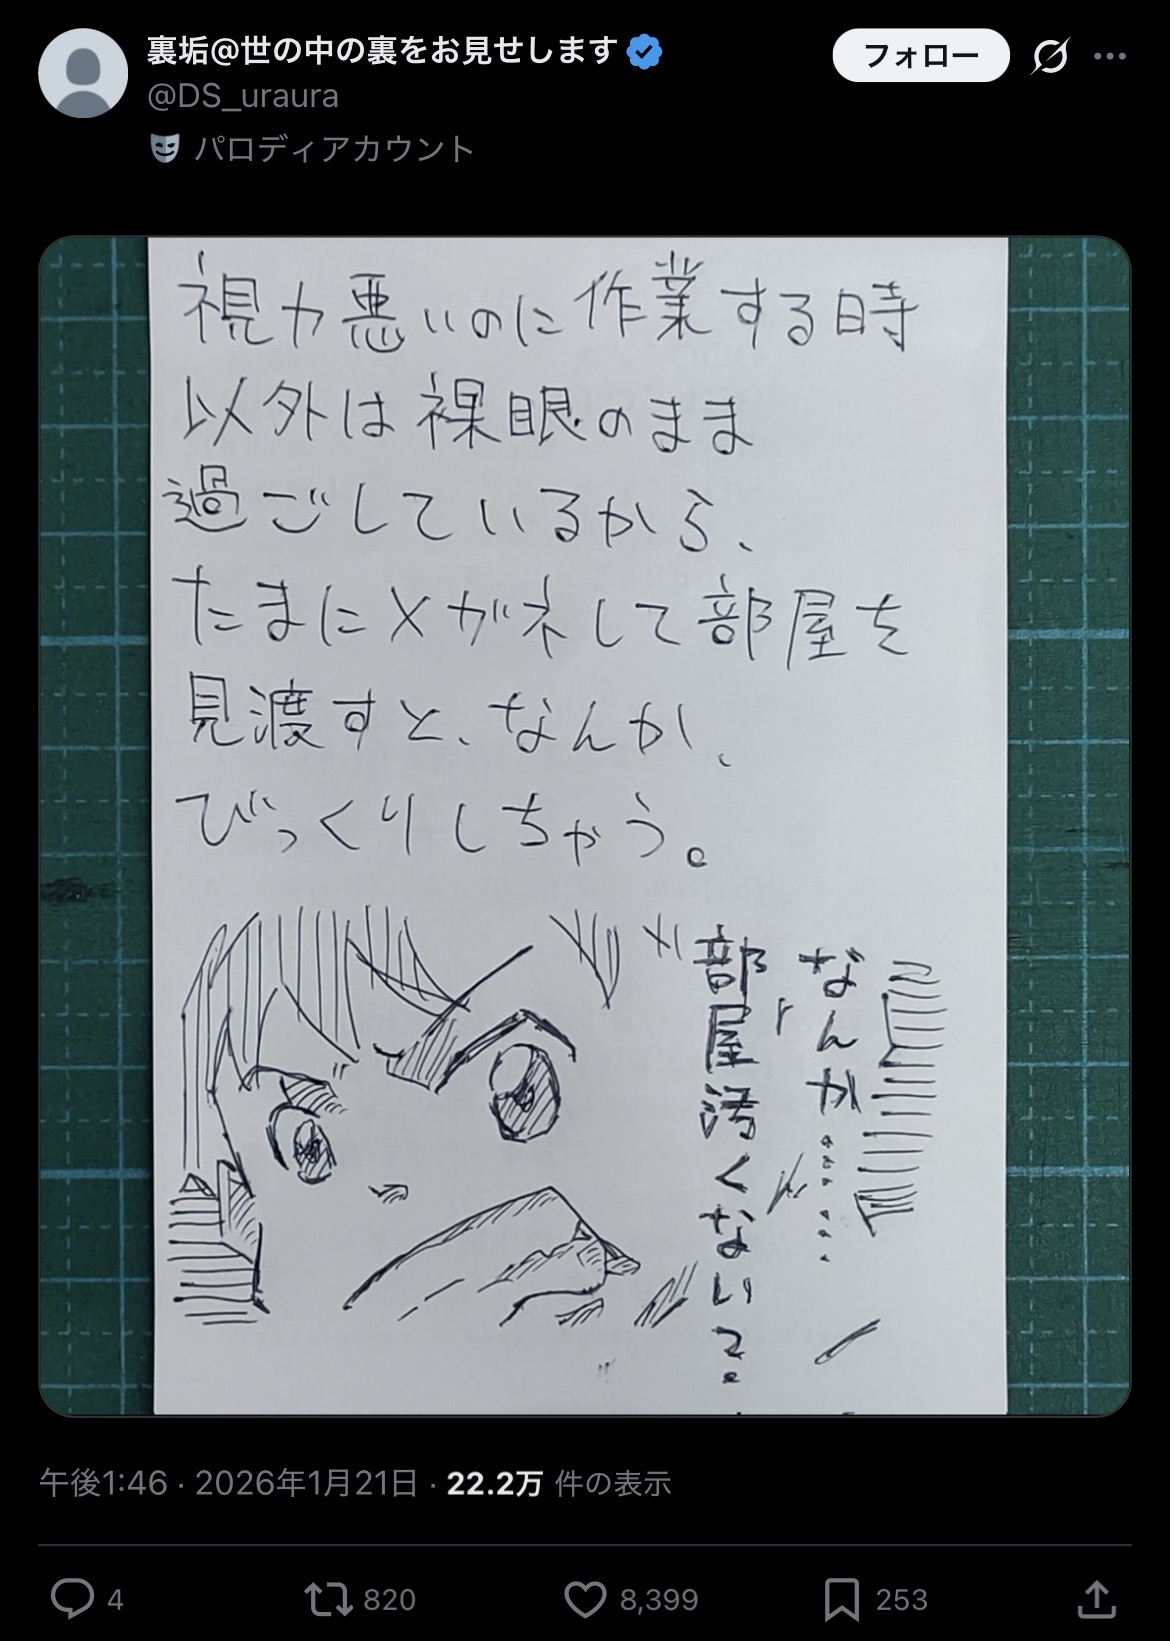 裏垢@世の中の裏をお見せします
フォロー
@DS_uraura
パロディアカウント
視力悪いのに作業する時
以外は裸眼のまま
過ごしているから、
たまにメガネして部屋を
見渡すと、なんか、
びっくりしちゃう。
なんか……
部屋汚くない?
午後1:46 · 2026年1月21日 · 22.2万 件の表示
4
820
8,399
253